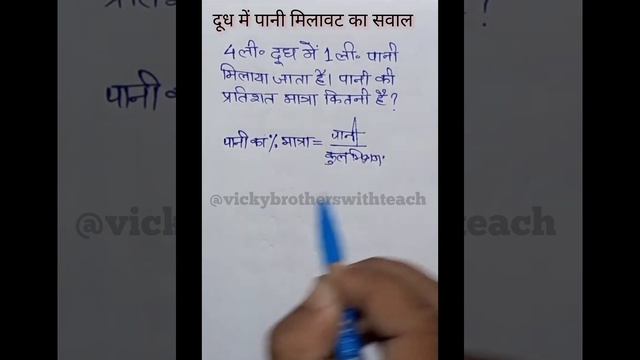 दूध में पानी मिलावट का सवाल
4ली॰ दूध में 1ली॰ पानी
मिलाया जाता है। पानी की
प्रतिशत मात्रा कितनी है?
पानी का % मात्रा = पानी
कुल मिश्रण
@vickybrotherswithteach